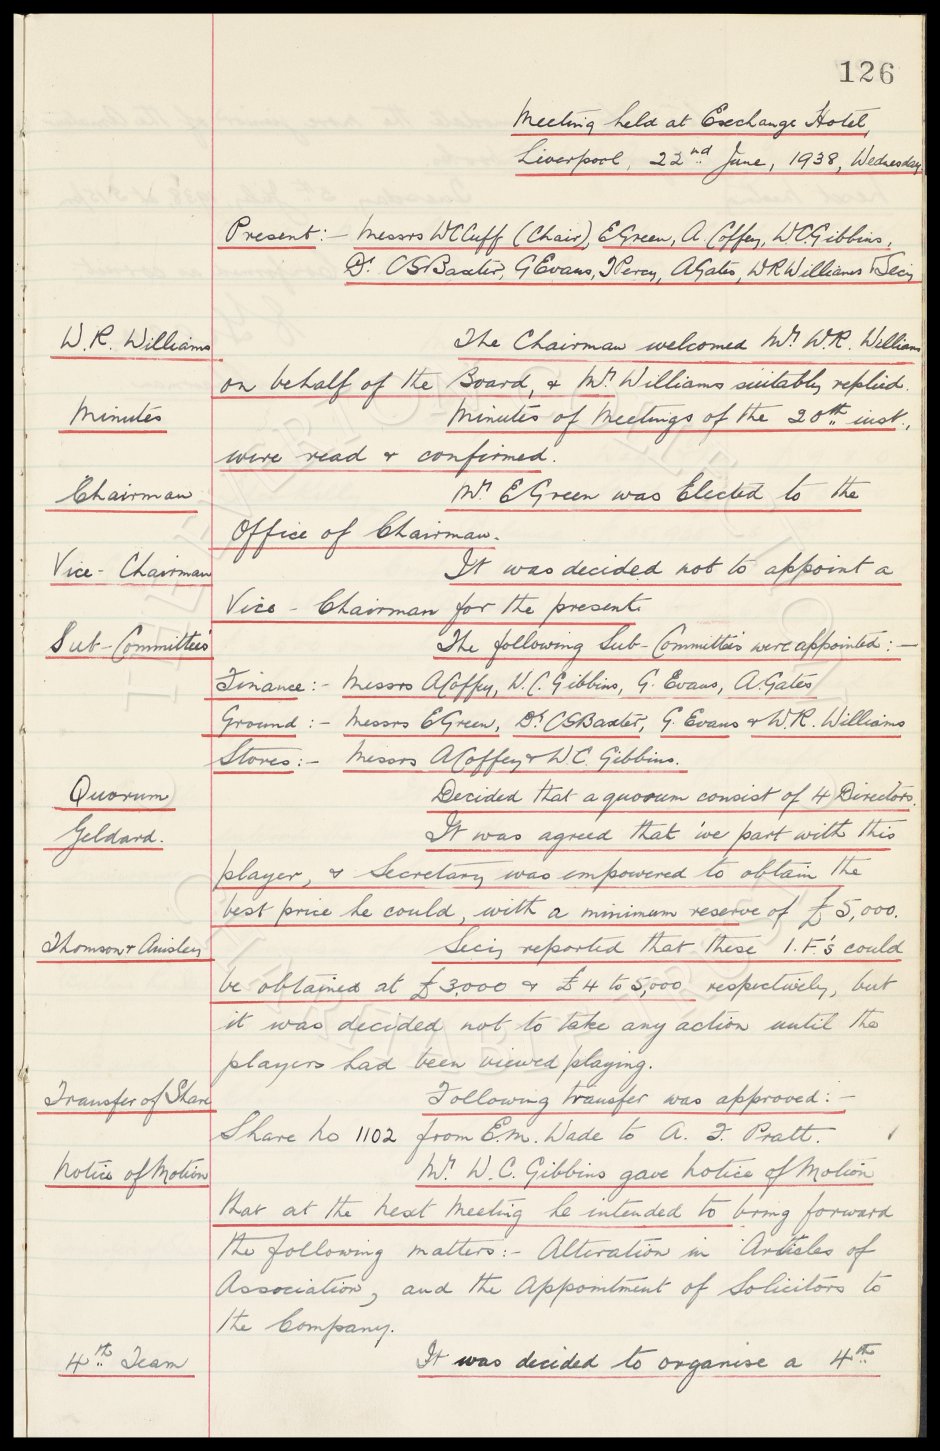 126
Meeting held at Exchange Hotel,
Liverpool, 22nd June, 1938, Wednesday
Present:- Messrs W C Cuff (Chair), E Green, A. Coffey, W.C. Gibbins,
Dr C S Baxter, G Evans, T Percy, A Gates, W R Williams & Secy
W. R. Williams The Chairman welcomed Mr W.R. Williams
on behalf of the Board, & Mr Williams suitably replied.
Minutes Minutes of Meetings of the 20th inst.,
were read & confirmed.
Chairman Mr E Green was Elected to the
Office of Chairman.
Vice - Chairman It was decided not to appoint a
Vice - Chairman for the present.
Sub-Committees The following Sub-Committees were appointed:-
Finance:- Messrs A Coffey, W.C. Gibbins, G. Evans, A. Gates
Ground:- Messrs E Green, Dr C S Baxter, G. Evans & W.R. Williams
Stores:- Messrs A Coffey & W C. Gibbins.
Quorum Decided that a quorum consist of 4 Directors.
Geldard. It was agreed that we part with this
player, & Secretary was empowered to obtain the
best price he could, with a minimum reserve of £5,000.
Thomson & Ainsley Secy reported that these I.F.'s could
be obtained at £3,000 & £4 to 5,000 respectively, but
it was decided not to take any action until the
players had been viewed playing.
Transfer of Share Following transfer was approved:-
Share No 1102 from E.M. Wade to A. F. Pratt.
Notice of Motion Mr W. C. Gibbins gave Notice of Motion
that at the next Meeting he intended to bring forward
the following matters:- Alteration in Articles of
Association, and the Appointment of Solicitors to
the Company.
4th Team It was decided to organise a 4th